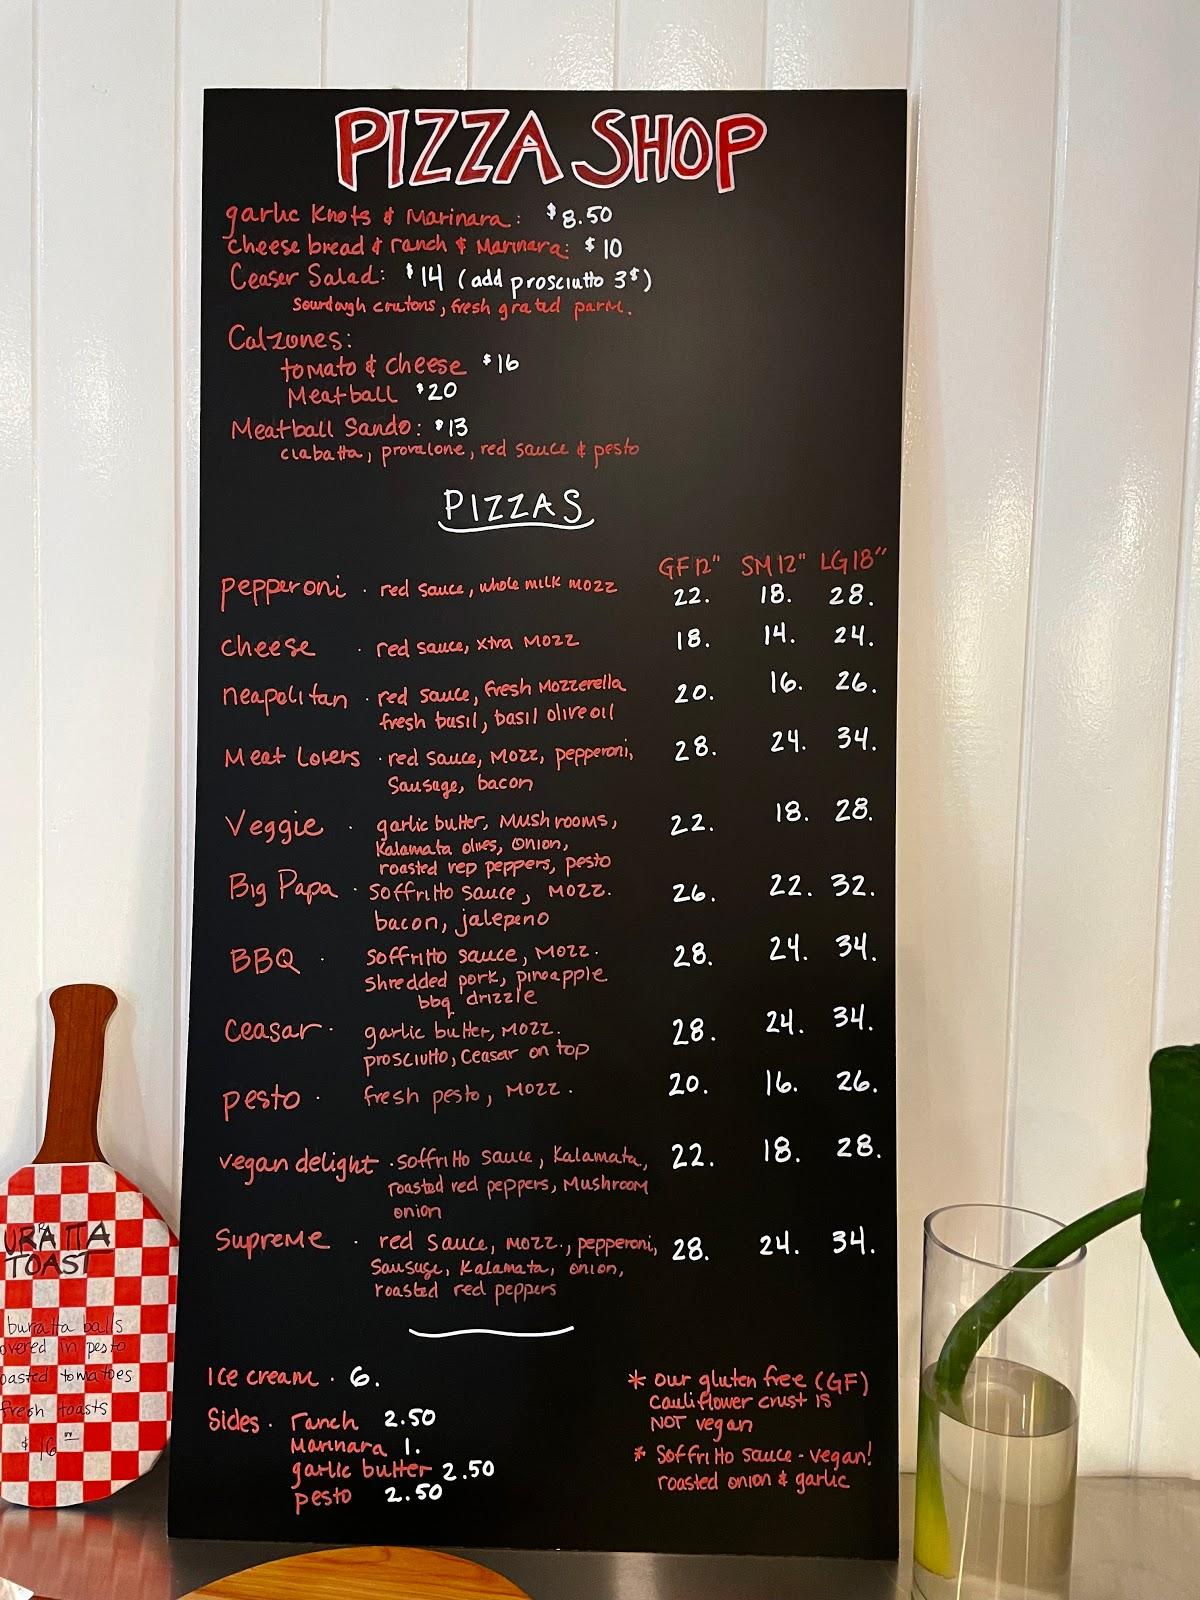 PIZZA SHOP
garlic Knots & Marinara: $8.50
cheese bread & ranch & Marinara: $10
Ceaser Salad: $14 (add prosciutto 3$)
Sourdough croutons, fresh grated parm.
Calzones:
tomato & cheese $16
Meatball $20
Meatball Sando: $13
ciabatta, provalone, red sauce & pesto
PIZZAS
GF 12" SM 12" LG 18"
pepperoni · red sauce, whole milk mozz 22. 18. 28.
cheese · red sauce, xtra mozz 18. 14. 24.
neapolitan · red sauce, fresh mozzerella 20. 16. 26.
fresh basil, basil olive oil
Meat Lovers · red sauce, mozz, pepperoni, 28. 24. 34.
Sausage, bacon
Veggie · garlic butter, mushrooms, 22. 18. 28.
Kalamata olives, onion,
roasted rep peppers, pesto
Big Papa · Soffritto sauce, mozz. 26. 22. 32.
bacon, jalepeno
BBQ · Soffritto sauce, mozz. 28. 24. 34.
shredded pork, pineapple
bbq drizzle
ceasar · garlic butter, mozz. 28. 24. 34.
prosciutto, Ceasar on top
pesto · fresh pesto, mozz. 20. 16. 26.
vegan delight · soffritto sauce, Kalamata, 22. 18. 28.
roasted red peppers, mushroom
onion
Supreme · red sauce, mozz., pepperoni, 28. 24. 34.
Sausage, Kalamata, onion,
roasted red peppers
Ice cream · 6.
Sides · ranch 2.50
Marinara 1.
garlic butter 2.50
pesto 2.50
* our gluten free (GF)
cauliflower crust is
NOT vegan
* Soffritto sauce - vegan!
roasted onion & garlic
URATTA
TOAST
burratta balls
overed in pesto
oasted tomatoes
fresh toasts
$16